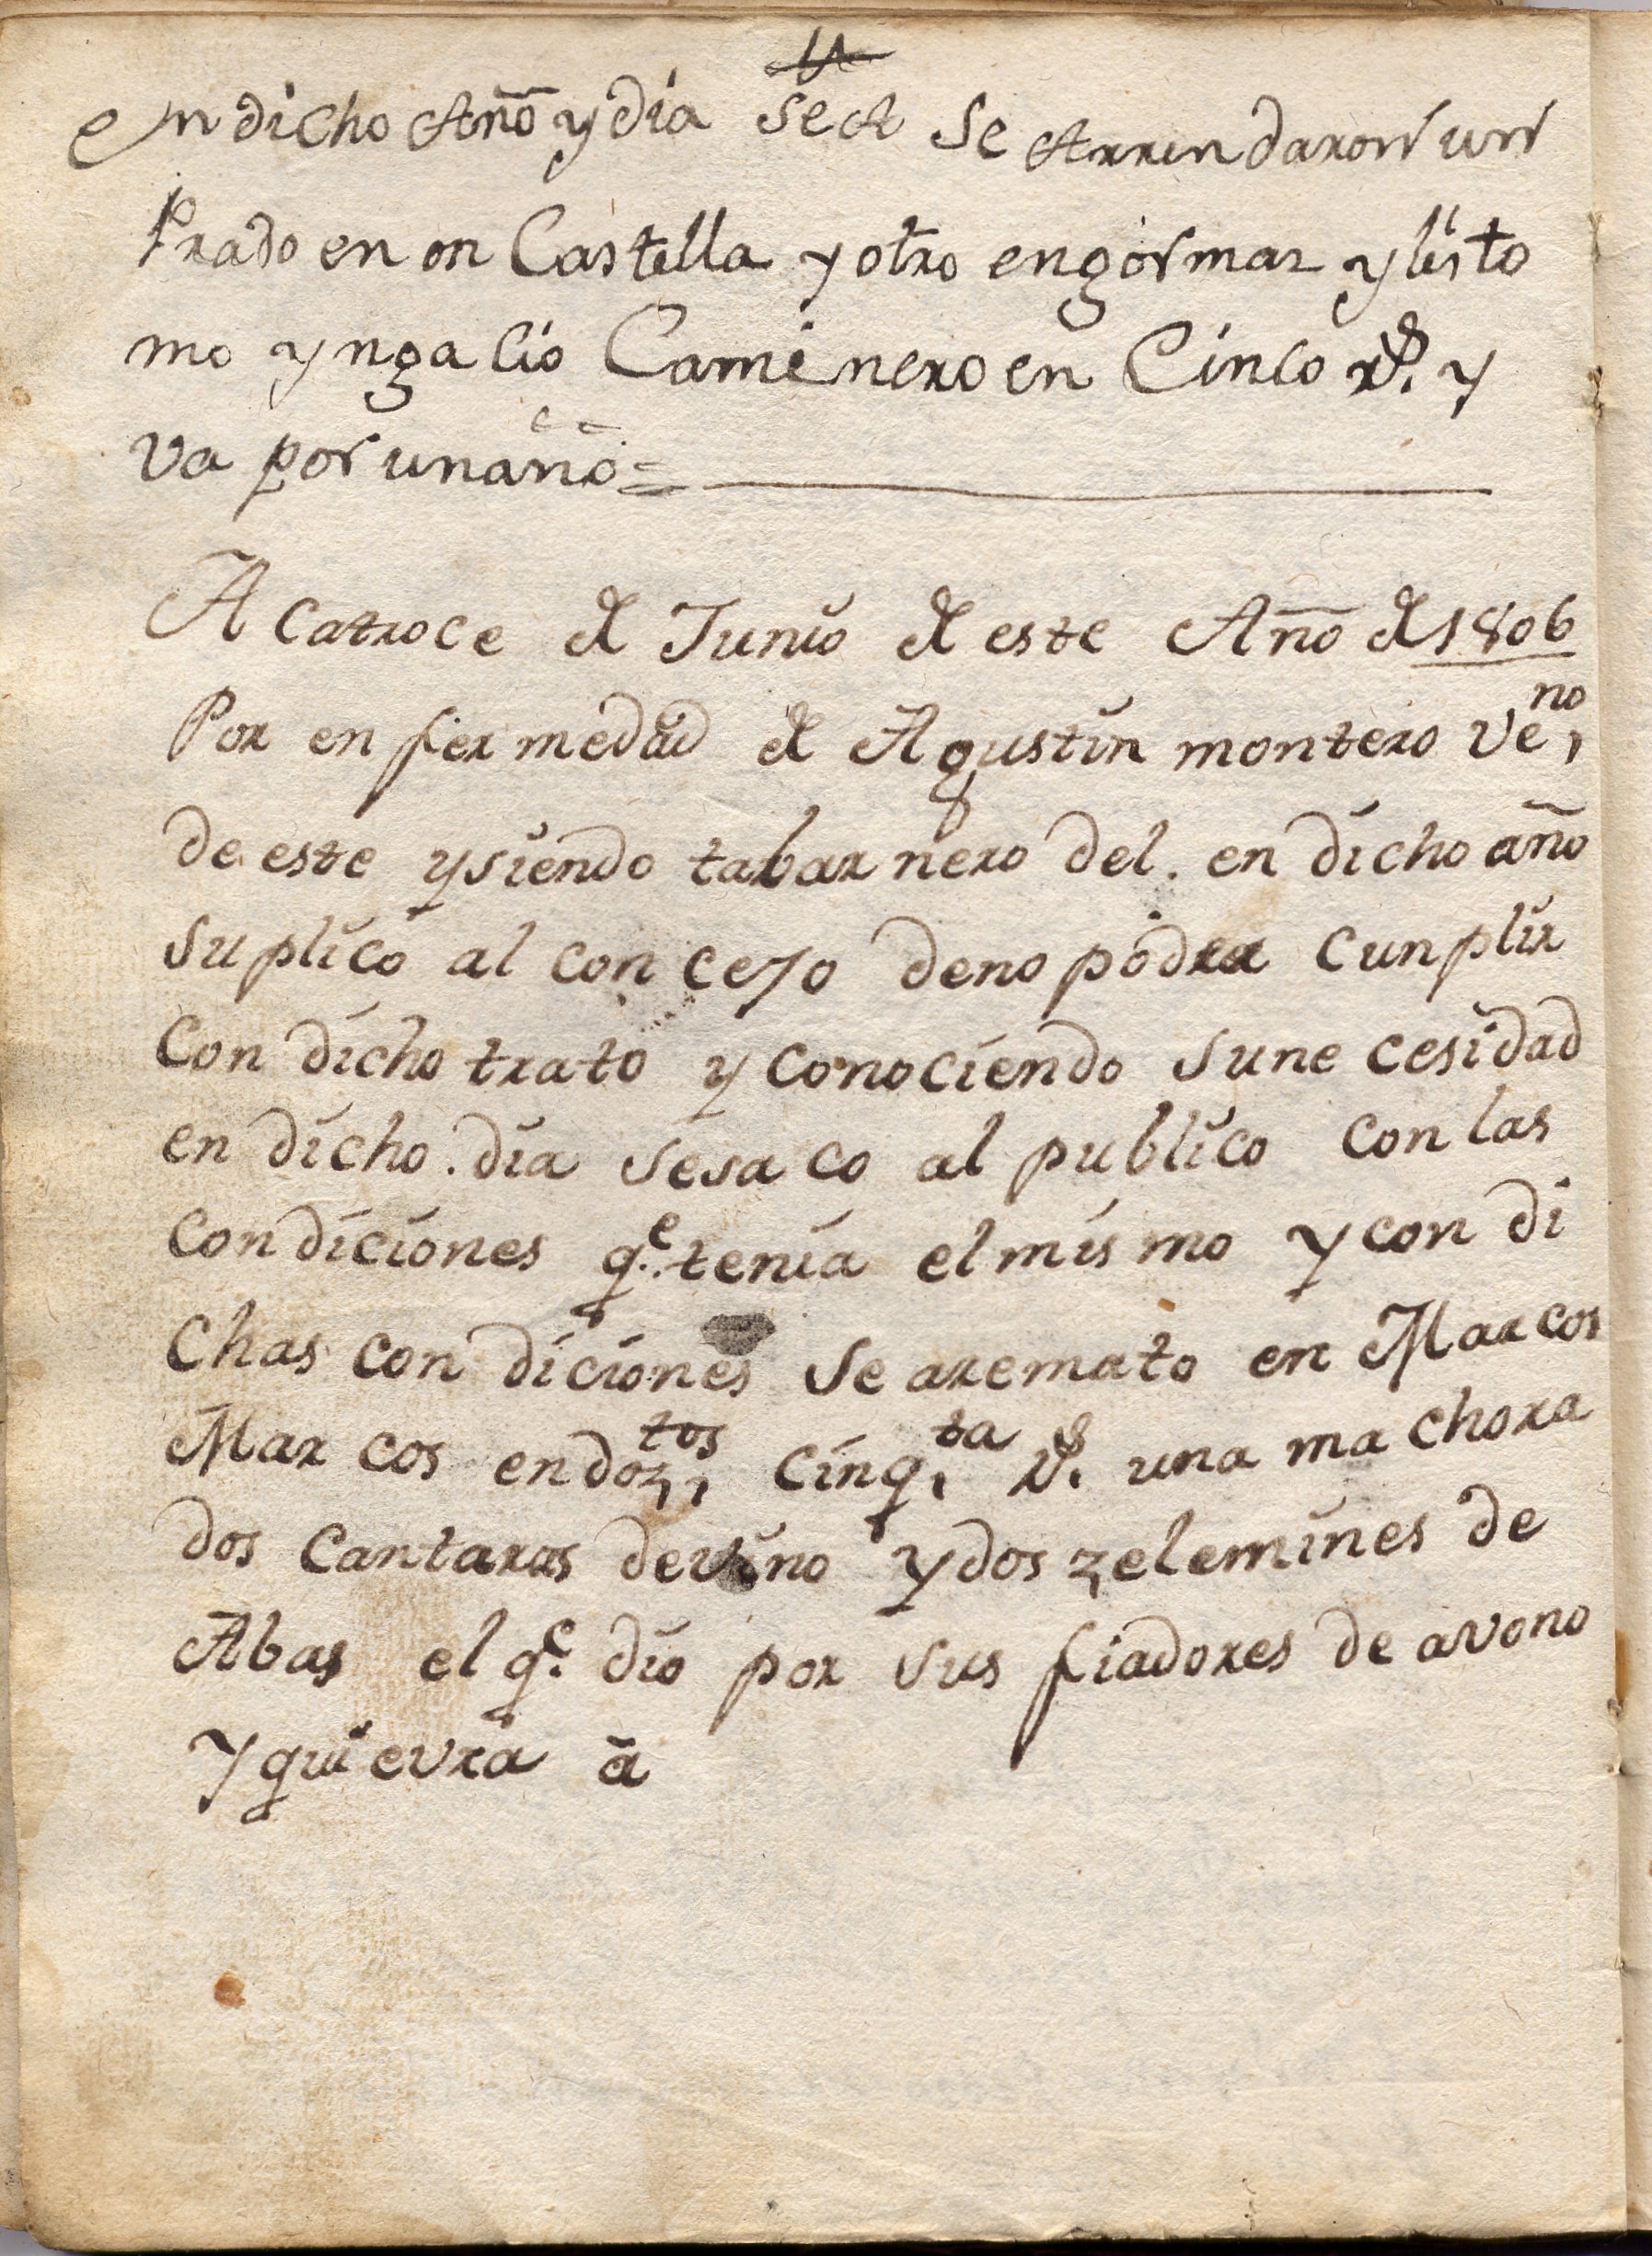 en dicho Año y dia Se A Se Arrendaron un
Prado en on Castella y otro engormar y listo
mo yngalio Caminero en Cinco rs. y
va por unaño=
A catroce de Junio de este Año de 1806
Por en fermedad de Agustin montero veno,
de este ysiendo tabarnero del. en dicho año
suplico al con cejo deno podra cunplir
Con dicho trato y conociendo sune cesidad
en dicho. dia sesa co al publico con las
condiciones qe. tenia elmis mo y con di
chas con diciones se aremato en Marcos
Mar cos en doztos, cinqta, rs. una ma chora
dos cantaros devino y dos zelemines de
Abas el qe. dio por sus fiadores de avono
y qui evra a